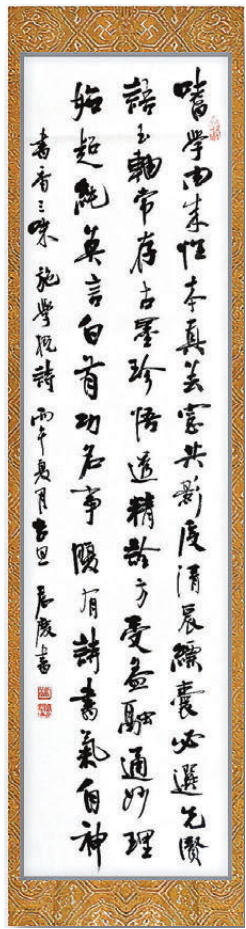 嗜學由来性本真芸窓共影度清晨縹囊必選先賢
語玉軸常存古墨珍悟透精詮方受益融通妙理
始超純莫言白首功名事腹有詩書氣自神
書香三味 施學概詩 丙午夏月吉旦 慶書